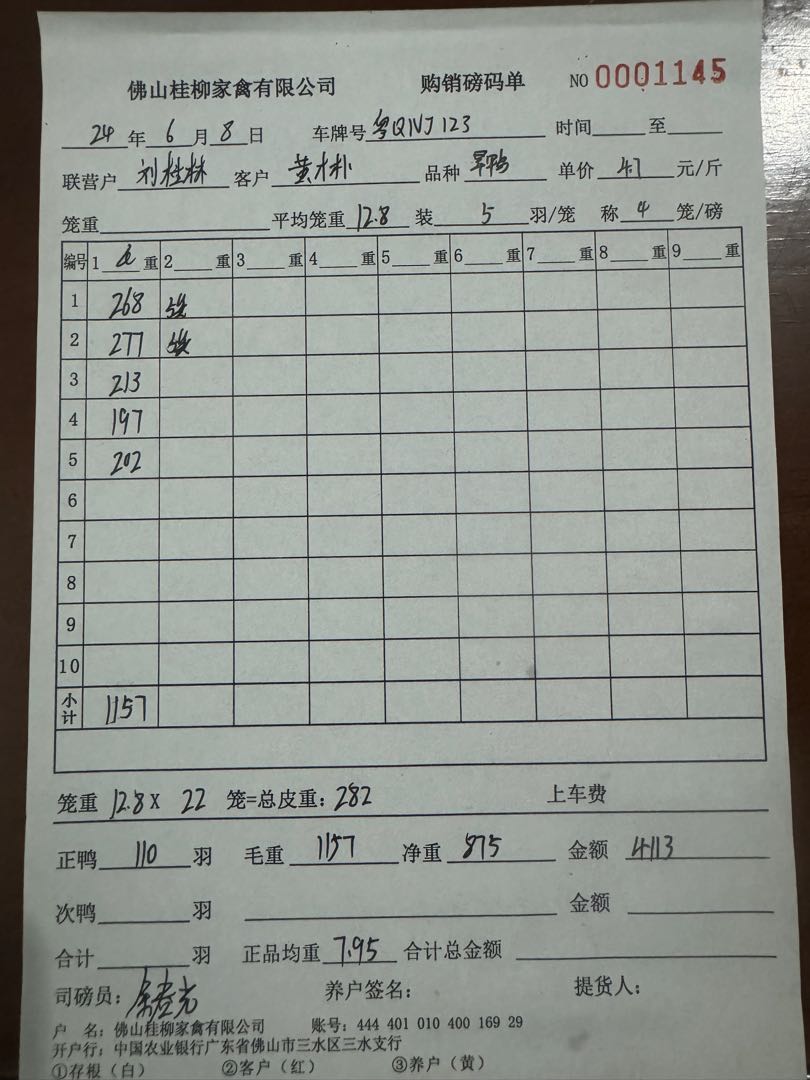 佛山桂柳家禽有限公司 购销磅码单 NO 0001145
24年6月8日 车牌号粤QNJ123 时间 至
联营户 刘桂林 客户 黄木朴 品种 旱鸭 单价 4.7 元/斤
笼重 平均笼重 12.8 装 5 羽/笼 称 4 笼/磅
编号 1 重 2 重 3 重 4 重 5 重 6 重 7 重 8 重 9 重
1 268
2 277
3 213
4 197
5 202
6
7
8
9
10
小计 1157
笼重 12.8 X 22 笼=总皮重:282 上车费
正鸭 110 羽 毛重 1157 净重 875 金额 4113
次鸭 羽 金额
合计 羽 正品均重 7.95 合计总金额
司磅员: 养户签名: 提货人:
户 名:佛山桂柳家禽有限公司 账号:444 401 010 400 169 29
开户行:中国农业银行广东省佛山市三水区三水支行
①存根(白) ②客户(红) ③养户(黄)